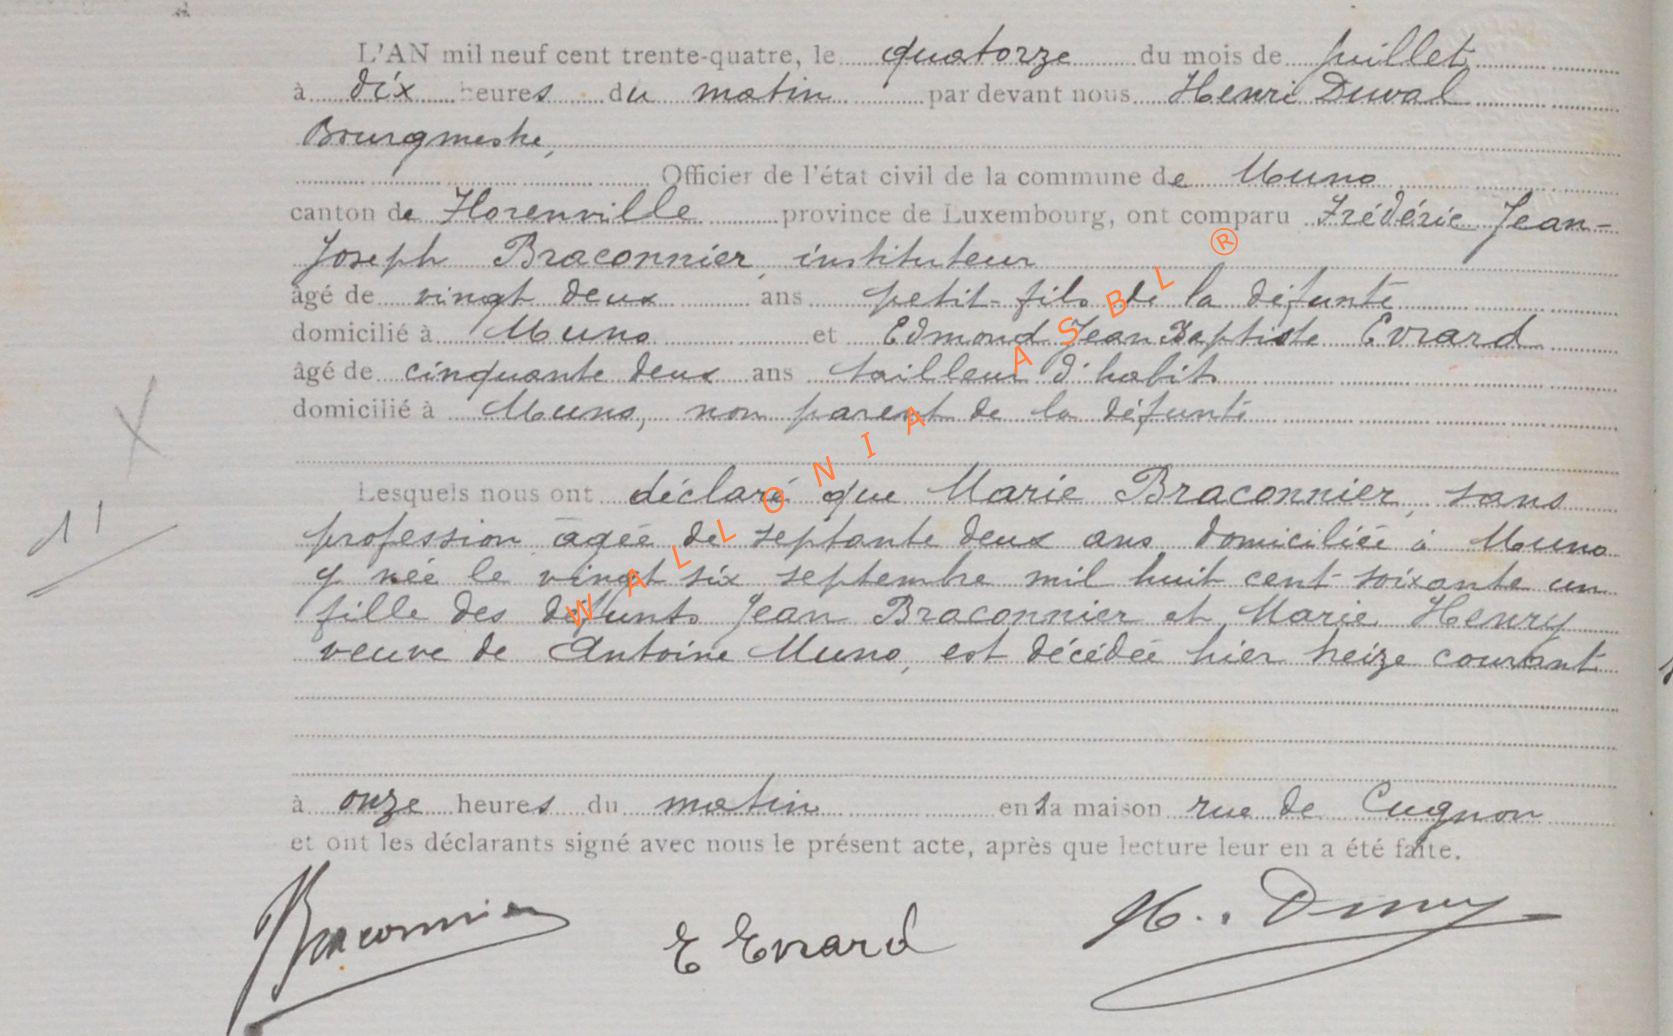 L'AN mil neuf cent trente-quatre, le quatorze du mois de juillet
à dix heures du matin par devant nous Henri Duval
Bourgmestre,
Officier de l'état civil de la commune de Muno
canton de Florenville province de Luxembourg, ont comparu Frédéric Jean-
Joseph Braconnier, instituteur
âgé de vingt deux ans petit-fils de la défunte
domicilié à Muno et Edmond Jean Baptiste Evrard
âgé de cinquante deux ans tailleur d'habits
domicilié à Muno, non parent de la défunte
Lesquels nous ont déclaré que Marie Braconnier, sans
profession, âgée de septante deux ans, domiciliée à Muno
y née le vingt six septembre mil huit cent soixante un
fille des défunts Jean Braconnier et Marie Henry
veuve de Antoine Muno, est décédée hier treize courant
à onze heures du matin en sa maison rue de Cugnon
et ont les déclarants signé avec nous le présent acte, après que lecture leur en a été faite.
Braconnier E Evrard H. Duval
WALLONIA ASBL ®